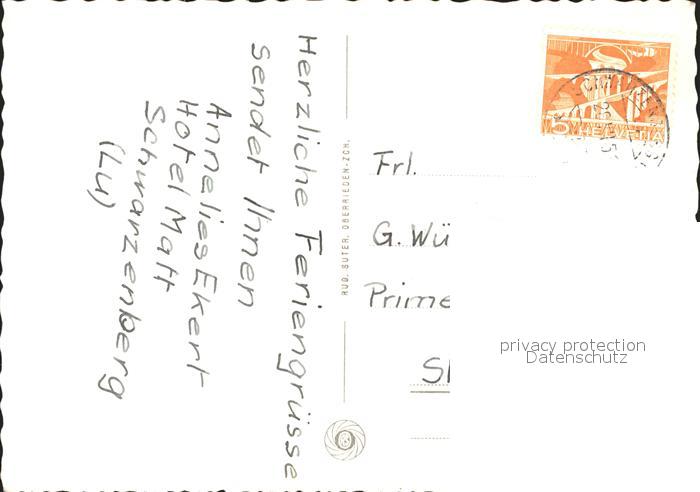 Herzliche Feriengrüsse
sendet Ihnen
Annelies Ekert
Hotel Matt
Schwarzenberg
(Lu)
RUD. SUTER, OBERRIEDEN-ZCH.
5 HELVETIA
Frl.
G. Wü
Prime
privacy protection
Datenschutz